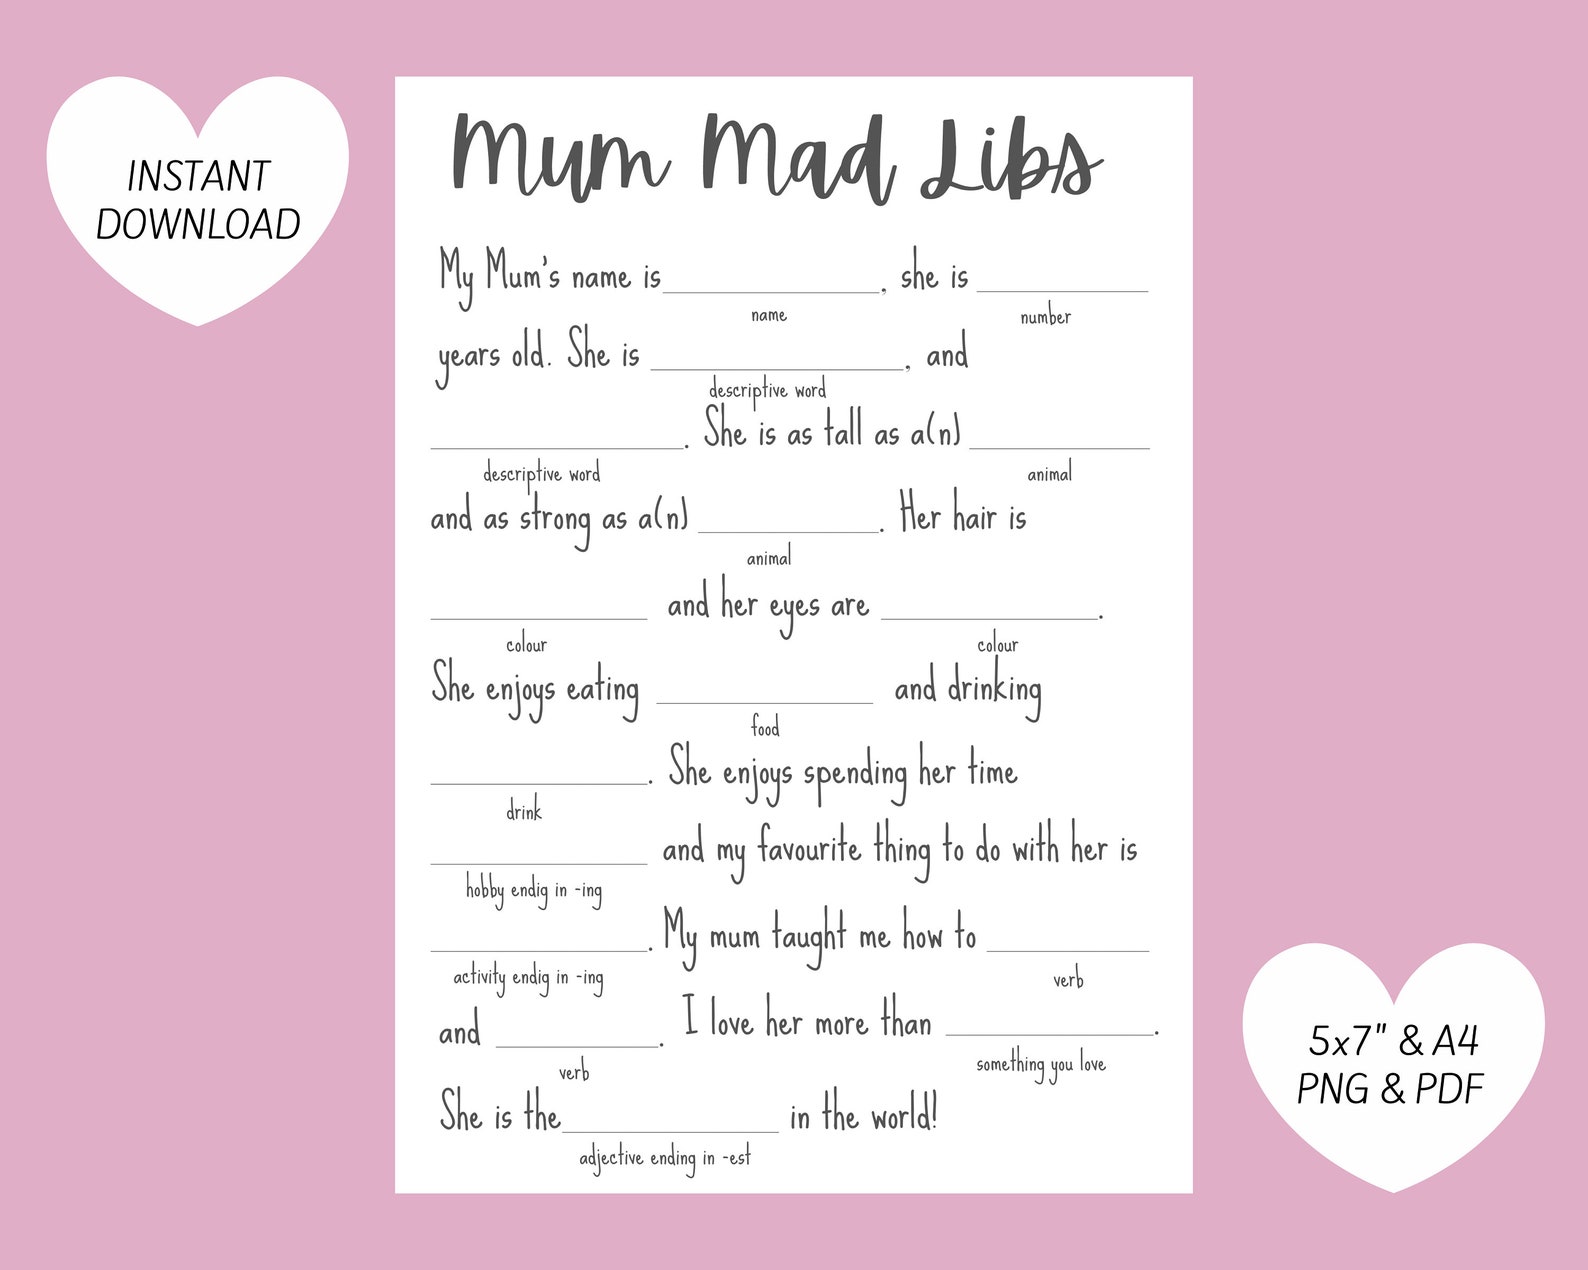 INSTANT
DOWNLOAD
Mum Mad Libs
My Mum's name is____, she is ____
name number
years old. She is ____, and
descriptive word
____. She is as tall as a(n) ____
descriptive word animal
and as strong as a(n) ____. Her hair is
animal
____ and her eyes are ____.
colour colour
She enjoys eating ____ and drinking
food
____. She enjoys spending her time
drink
____ and my favourite thing to do with her is
hobby endig in -ing
____. My mum taught me how to ____
activity endig in -ing verb
and ____. I love her more than ____.
verb something you love
She is the____ in the world!
adjective ending in -est
5x7" & A4
PNG & PDF